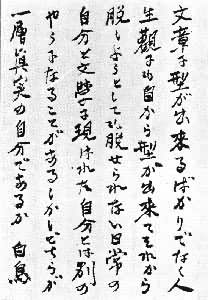 文章に型が出来るばかりでなく人
生觀にも自から型が出來てそれから
脱しようとしても脱せられない日常の
自分と文学に現はれた自分とは別の
やうになることがあるしかしどちらが
一層眞実の自分であるか 白鳥